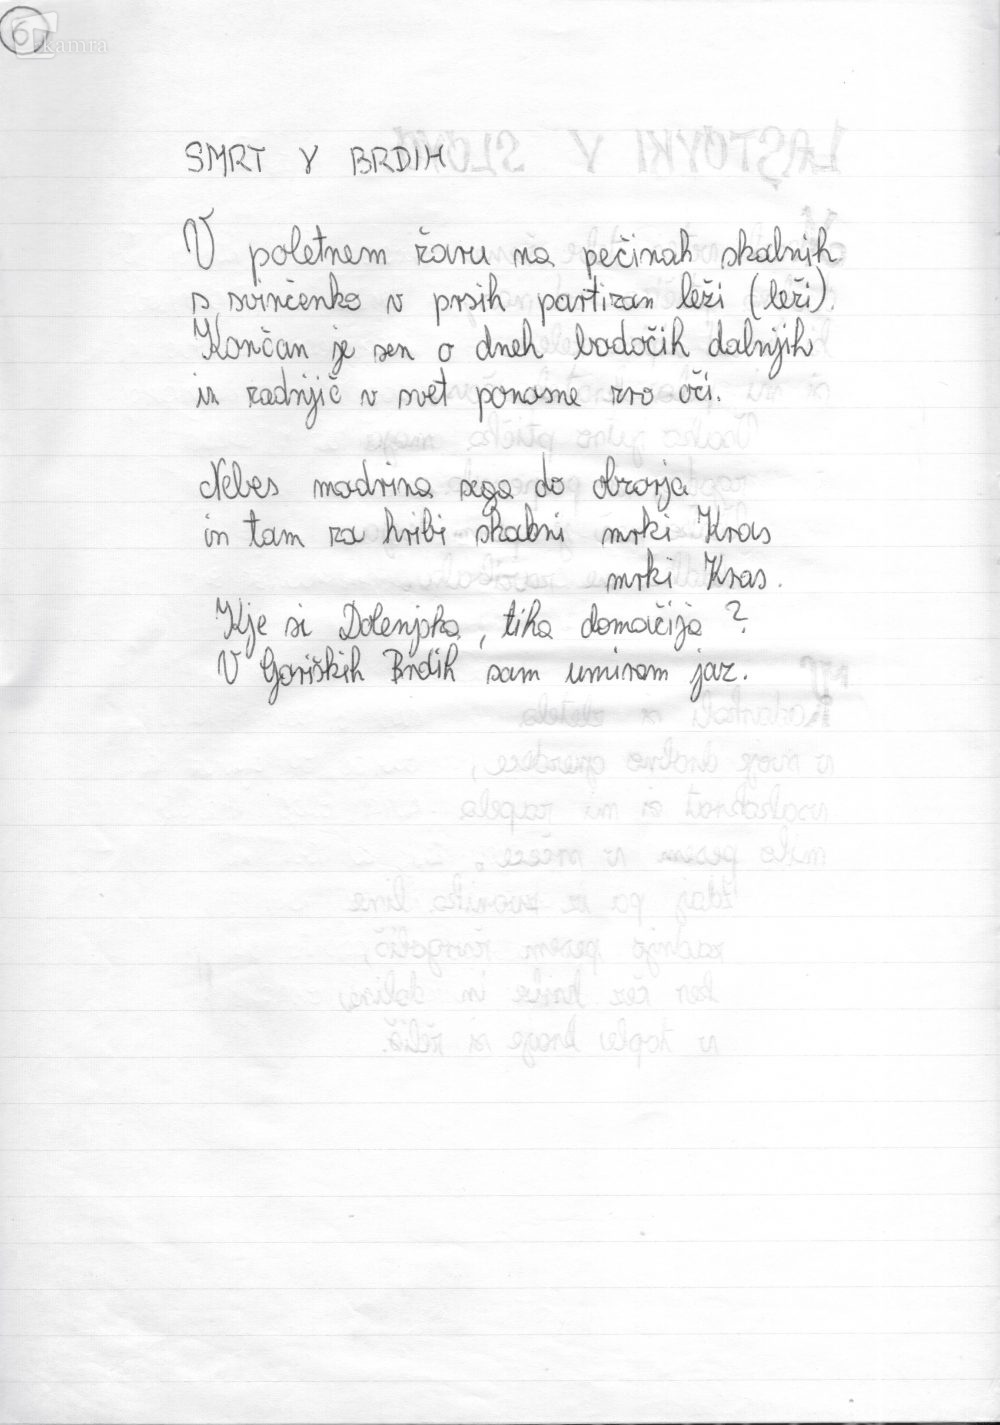 6
kamra
SMRT V BRDIH
V poletnem žaru na pečinah skalnih
s svinčenko v prsih partizan leži (leži).
Končan je sen o dneh bodočih dalnjih
in zadnjič v svet ponosne zro oči.
Nebes modrina sega do obzorja
in tam za hribi skalni mrki Kras
mrki Kras.
Kje si Dolenjska, tiha domačija?
V Goriških Brdih sam umiram jaz.